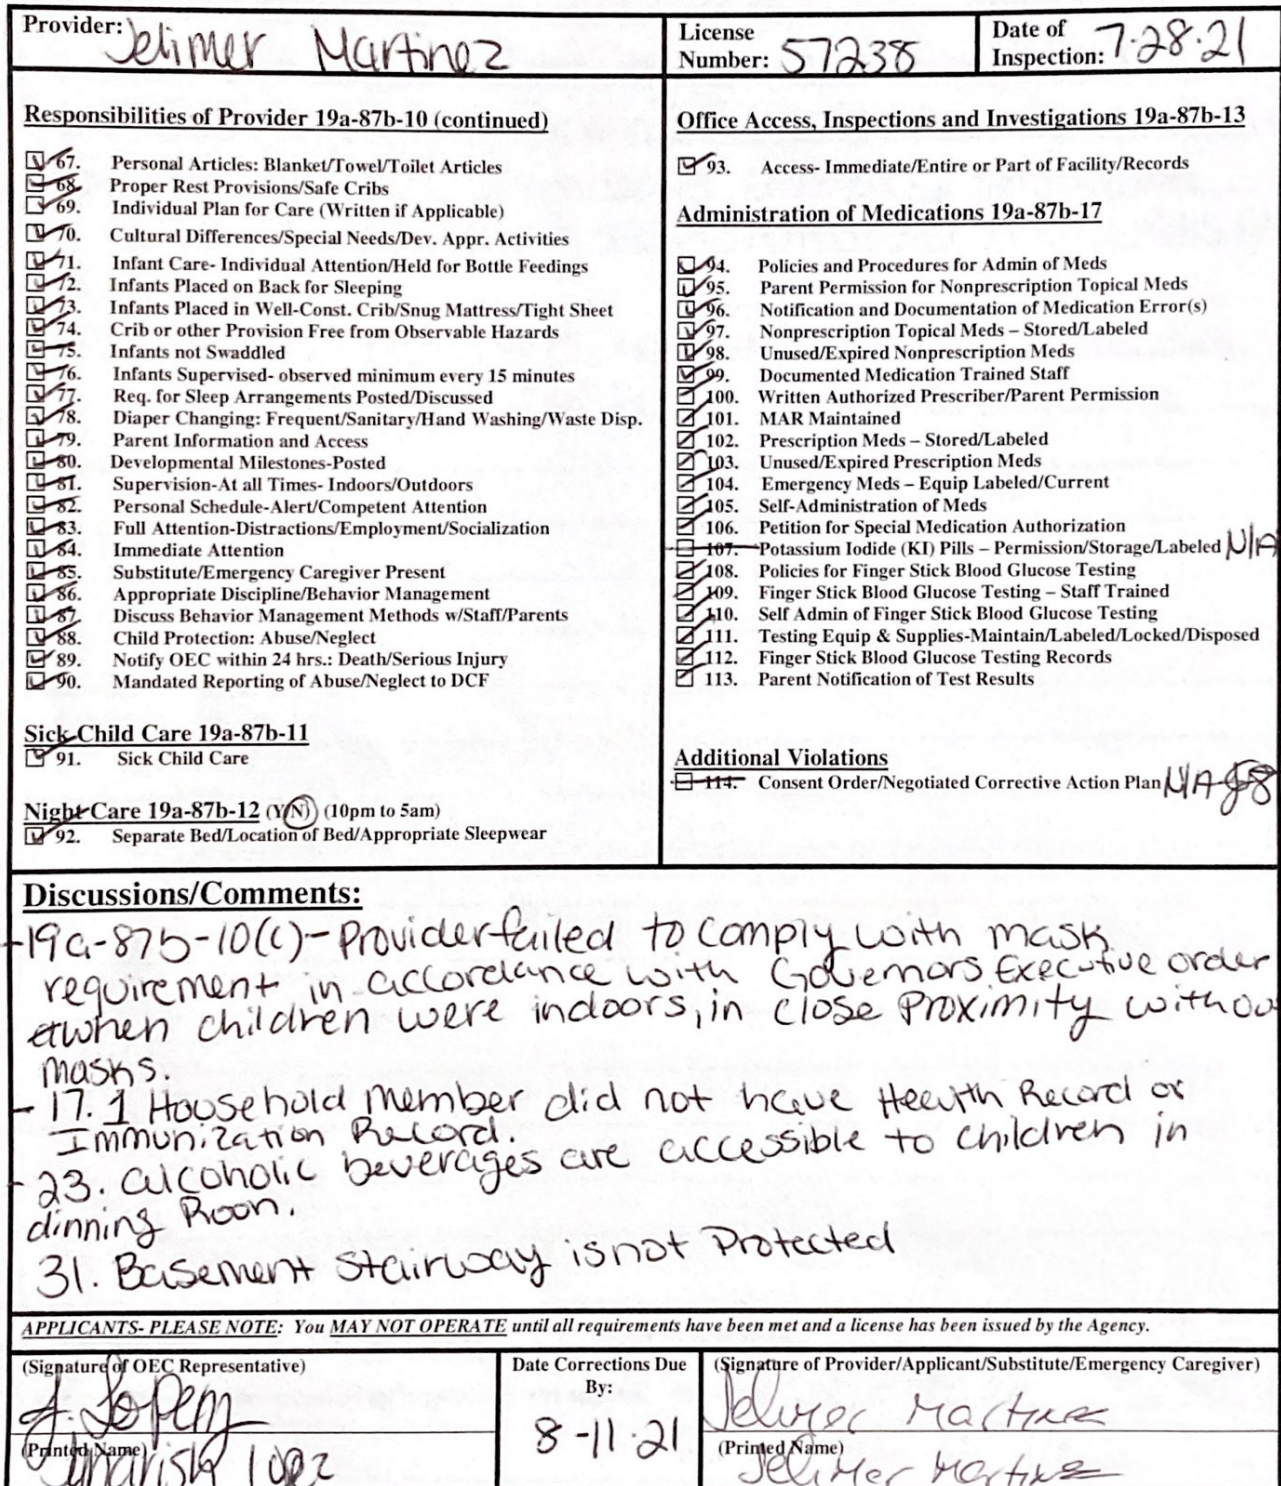 Provider: Jelimer Martinez
License Number: 57238
Date of Inspection: 7.28.21
Responsibilities of Provider 19a-87b-10 (continued)
67. Personal Articles: Blanket/Towel/Toilet Articles
68. Proper Rest Provisions/Safe Cribs
69. Individual Plan for Care (Written if Applicable)
70. Cultural Differences/Special Needs/Dev. Appr. Activities
71. Infant Care- Individual Attention/Held for Bottle Feedings
72. Infants Placed on Back for Sleeping
73. Infants Placed in Well-Const. Crib/Snug Mattress/Tight Sheet
74. Crib or other Provision Free from Observable Hazards
75. Infants not Swaddled
76. Infants Supervised- observed minimum every 15 minutes
77. Req. for Sleep Arrangements Posted/Discussed
78. Diaper Changing: Frequent/Sanitary/Hand Washing/Waste Disp.
79. Parent Information and Access
80. Developmental Milestones-Posted
81. Supervision-At all Times- Indoors/Outdoors
82. Personal Schedule-Alert/Competent Attention
83. Full Attention-Distractions/Employment/Socialization
84. Immediate Attention
85. Substitute/Emergency Caregiver Present
86. Appropriate Discipline/Behavior Management
87. Discuss Behavior Management Methods w/Staff/Parents
88. Child Protection: Abuse/Neglect
89. Notify OEC within 24 hrs.: Death/Serious Injury
90. Mandated Reporting of Abuse/Neglect to DCF
Sick Child Care 19a-87b-11
91. Sick Child Care
Night Care 19a-87b-12 (Y/N) (10pm to 5am)
92. Separate Bed/Location of Bed/Appropriate Sleepwear
Office Access, Inspections and Investigations 19a-87b-13
93. Access- Immediate/Entire or Part of Facility/Records
Administration of Medications 19a-87b-17
94. Policies and Procedures for Admin of Meds
95. Parent Permission for Nonprescription Topical Meds
96. Notification and Documentation of Medication Error(s)
97. Nonprescription Topical Meds – Stored/Labeled
98. Unused/Expired Nonprescription Meds
99. Documented Medication Trained Staff
100. Written Authorized Prescriber/Parent Permission
101. MAR Maintained
102. Prescription Meds – Stored/Labeled
103. Unused/Expired Prescription Meds
104. Emergency Meds – Equip Labeled/Current
105. Self-Administration of Meds
106. Petition for Special Medication Authorization
107. Potassium Iodide (KI) Pills – Permission/Storage/Labeled N/A
108. Policies for Finger Stick Blood Glucose Testing
109. Finger Stick Blood Glucose Testing – Staff Trained
110. Self Admin of Finger Stick Blood Glucose Testing
111. Testing Equip & Supplies-Maintain/Labeled/Locked/Disposed
112. Finger Stick Blood Glucose Testing Records
113. Parent Notification of Test Results
Additional Violations
114. Consent Order/Negotiated Corrective Action Plan N/A
Discussions/Comments:
-19a-87b-10(c)- Provider failed to comply with mask
requirement in accordance with Governors Executive order
when children were indoors, in close proximity withou
masks.
- 17. 1 Household member did not have Health Record or
Immunization Record.
- 23. alcoholic beverages are accessible to children in
dinning Roon.
31. Basement Stairway is not Protected
APPLICANTS- PLEASE NOTE: You MAY NOT OPERATE until all requirements have been met and a license has been issued by the Agency.
(Signature of OEC Representative)
J. Lopez
(Printed Name)
Date Corrections Due
By:
8-11-21
(Signature of Provider/Applicant/Substitute/Emergency Caregiver)
Jelimer Martinez
(Printed Name)
Jelimer Martinez